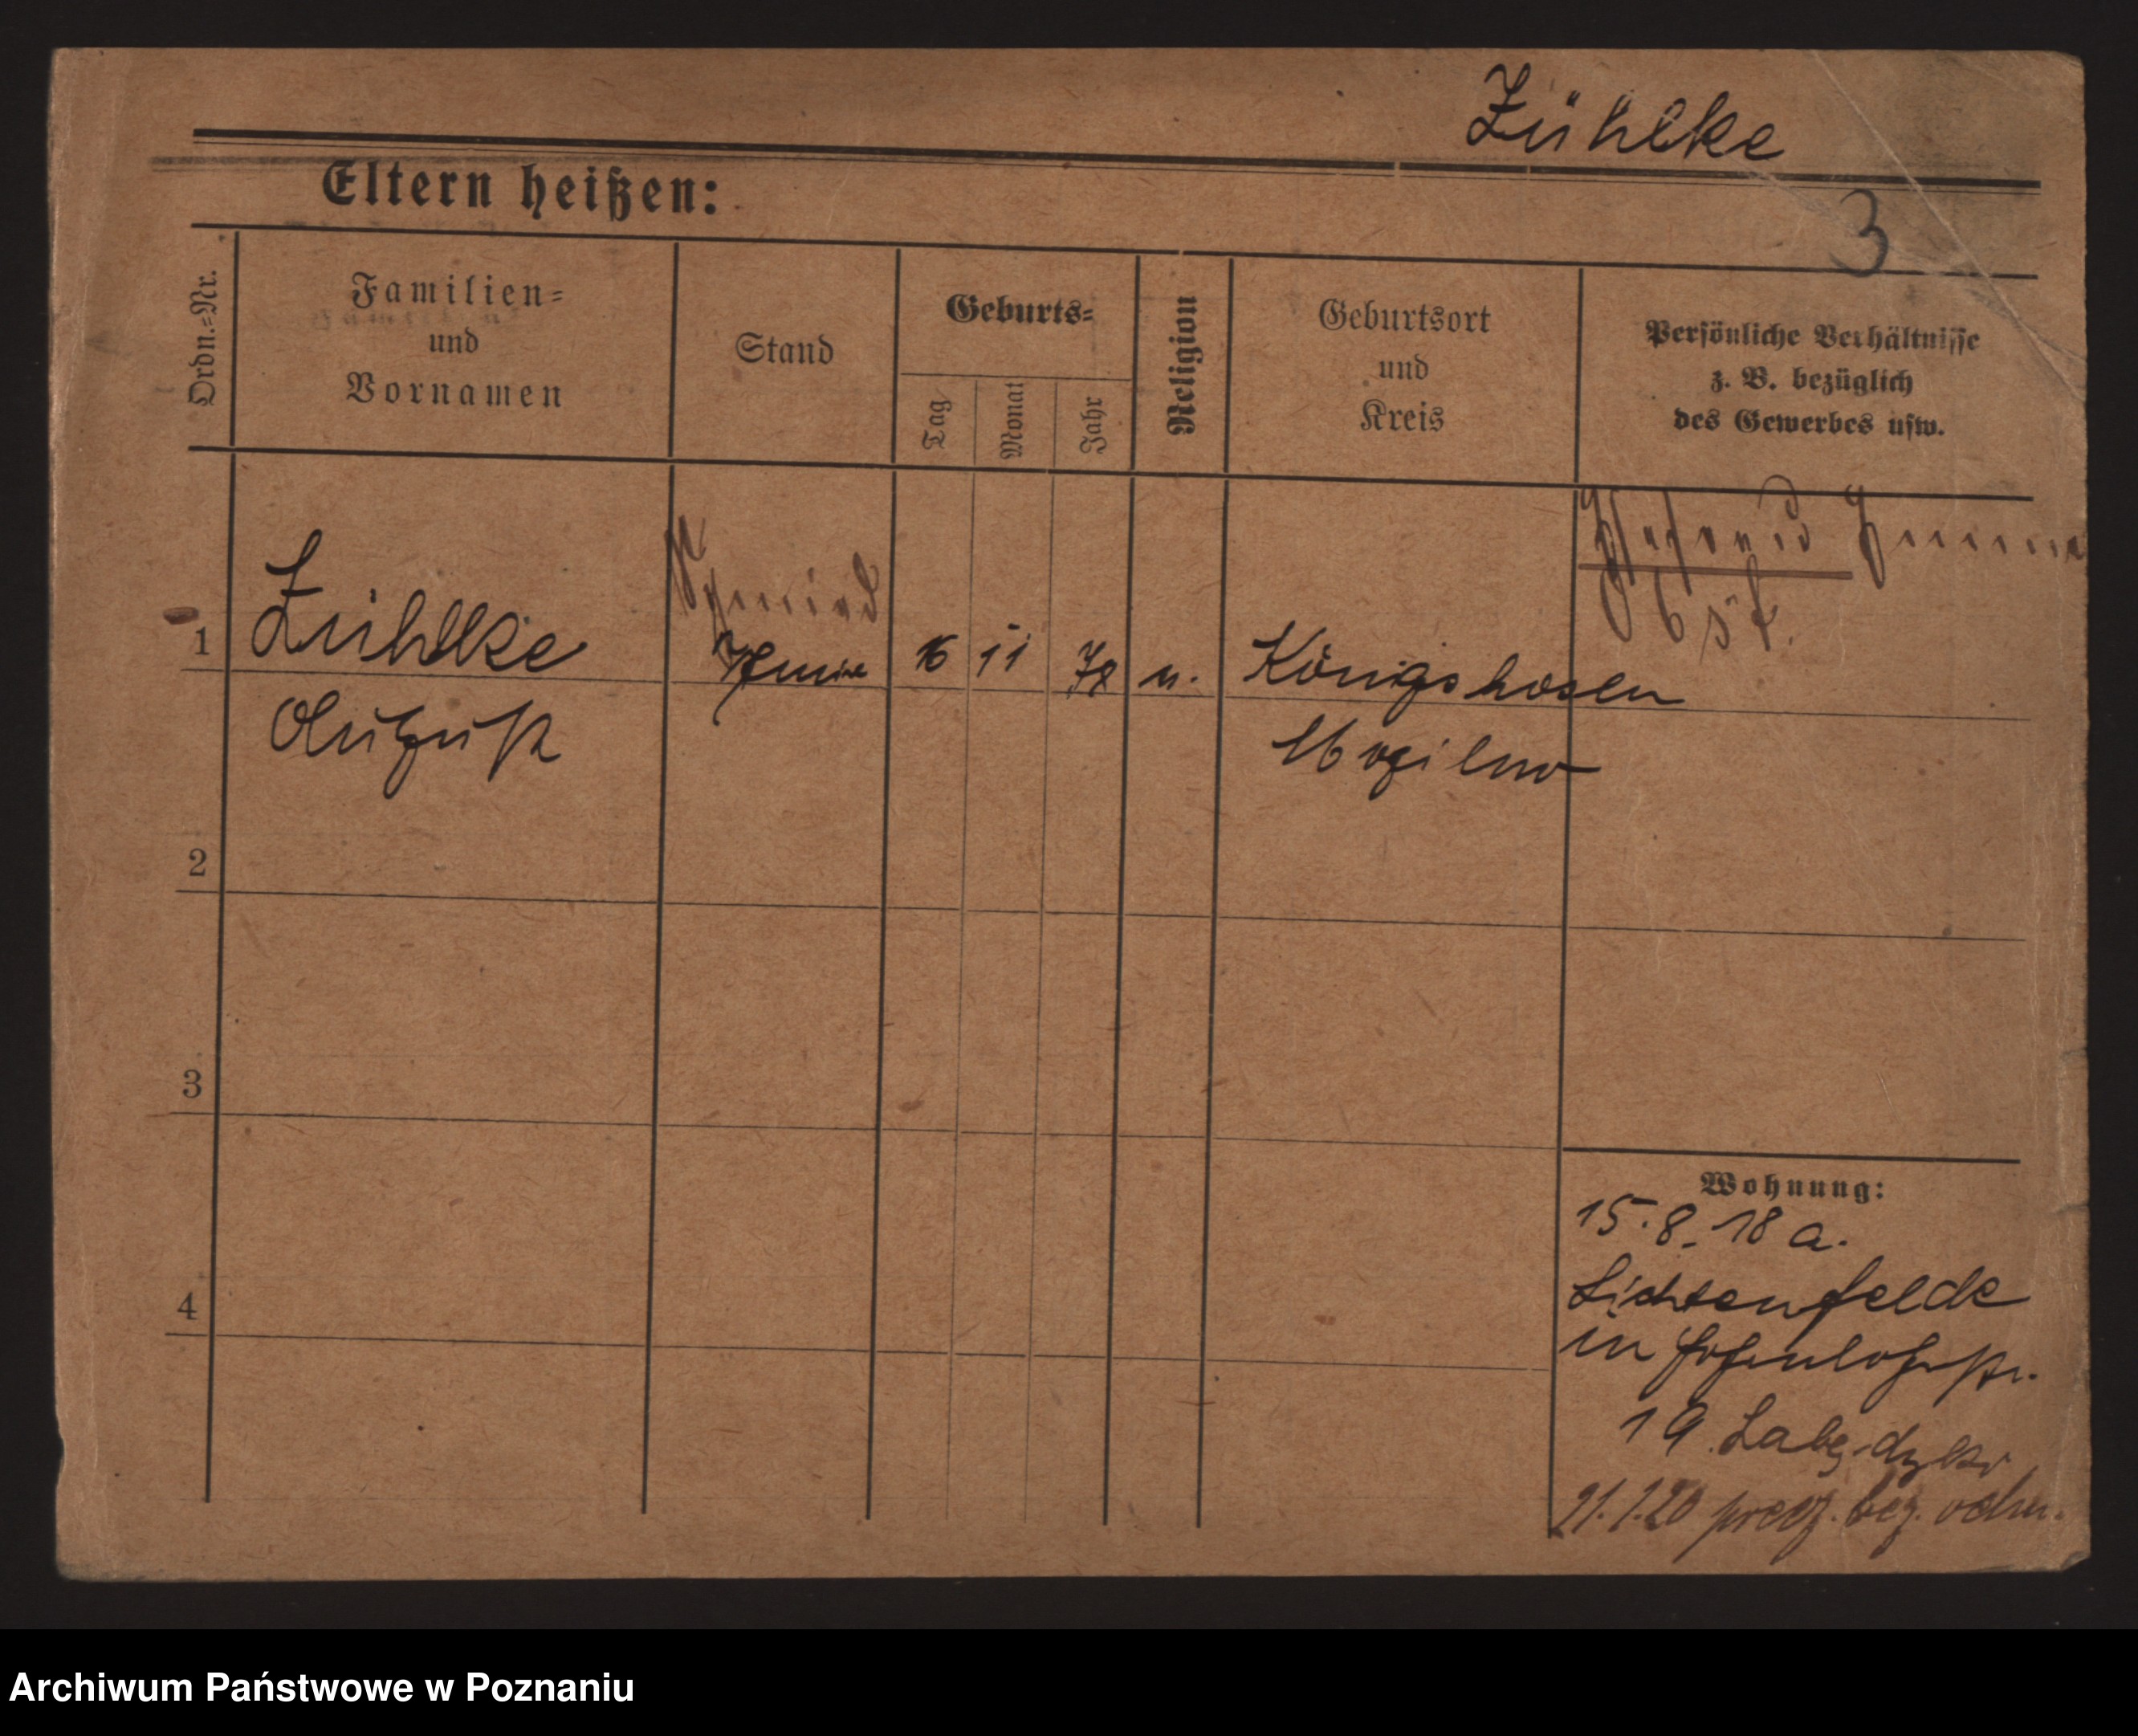 Zühlke
Eltern heißen:
3
Ordn.=Nr.
Familien=
und
Vornamen
Stand
Geburts=
Tag
Monat
Jahr
Religion
Geburtsort
und
Kreis
Persönliche Verhältnisse
z. B. bezüglich
des Gewerbes usw.
1
Zühlke
August
Schmied
16
11
78
Königshosen
Mogilno
2
3
4
Wohnung:
15.8.18 a.
Lichtenfelde
in Hohenlohestr.
19
21.1.20
Archiwum Państwowe w Poznaniu